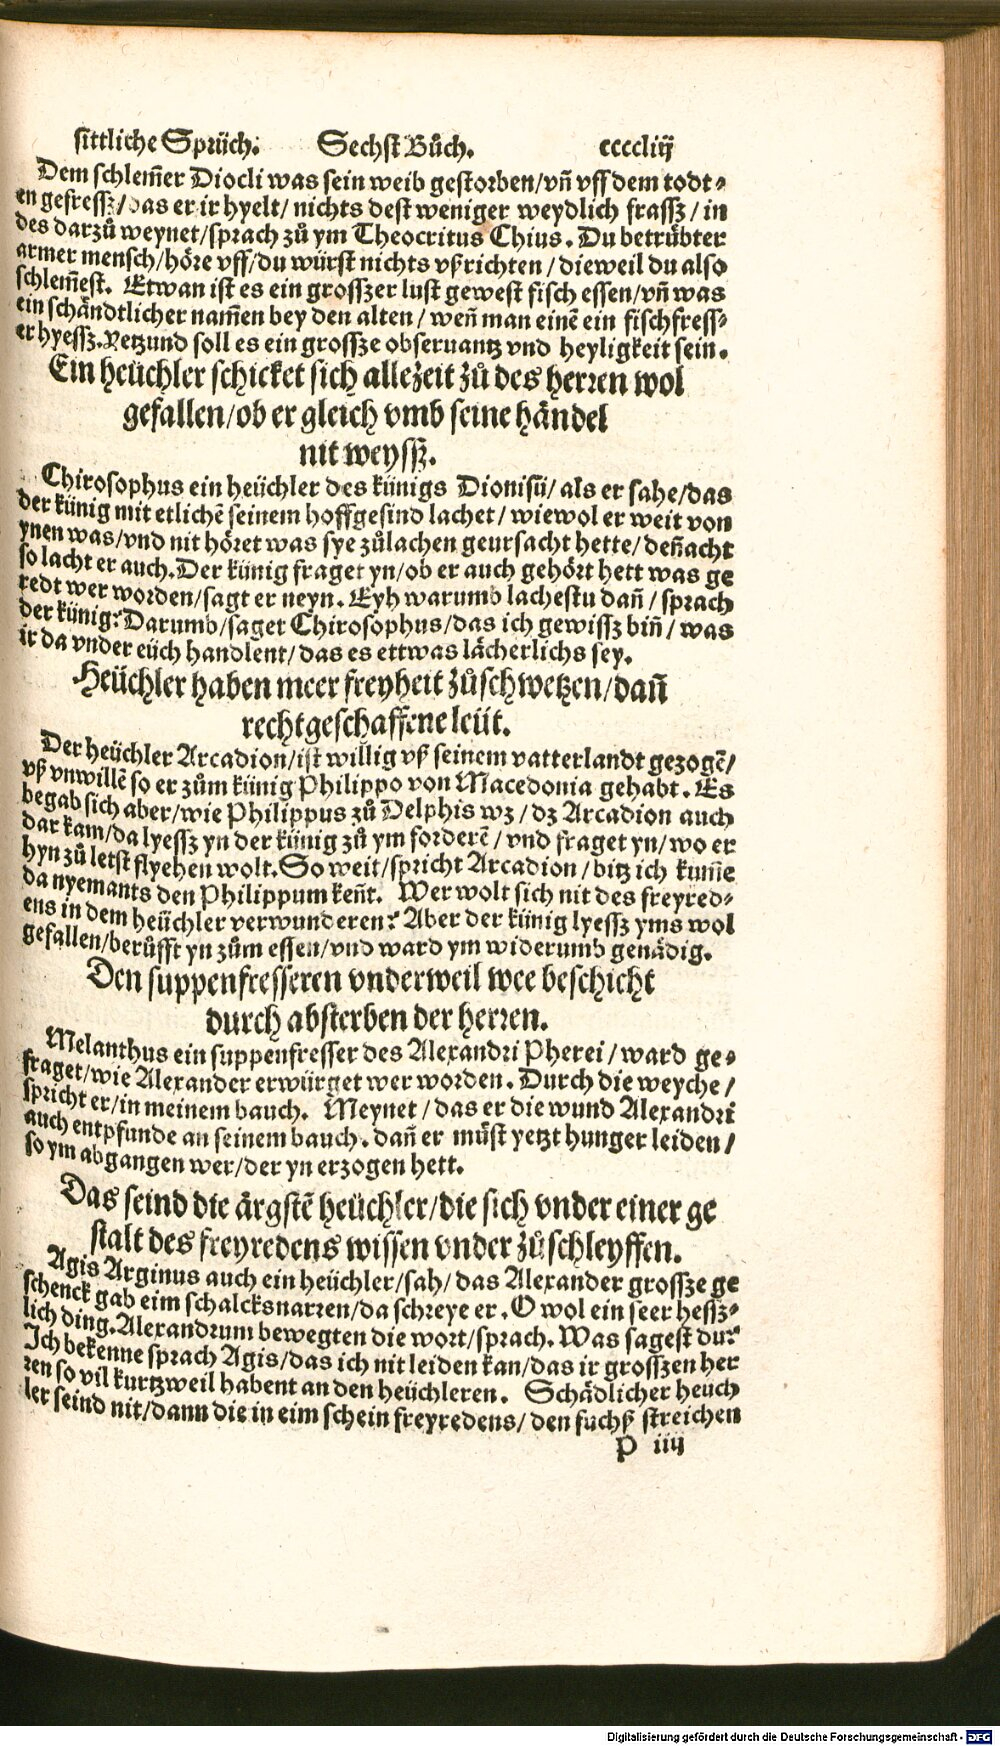 sittliche Sprüch. Sechst Bůch. ccccliij
Dem schlem̃er Diocli was sein weib gestorben/vñ vff dem todt⸗
en gefressz/das er ir hyelt/ nichts dest weniger weydlich frassz/ in
des darzů weynet/sprach zů ym Theocritus Chius. Du betrůbter
armer mensch/höre vff/du würst nichts vßrichten/dieweil du also
schlem̃est. Etwan ist es ein grosszer lust gewest fisch essen/vñ was
ein schåndtlicher nam̃en bey den alten/ weñ man einē ein fischfress⸗
er hyessz.Yetzund soll es ein grossze obseruantz vnd heyligkeit sein.
Ein heüchler schicket sich allezeit zů des herren wol
gefallen/ob er gleich vmb seine håndel
nit weyssz.
Chirosophus ein heüchler des künigs Dionisij/ als er sahe/das
der künig mit etlichē seinem hoffgesind lachet/ wiewol er weit von
ynen was/vnd nit höret was sye zůlachen geursacht hette/ deñacht
so lacht er auch.Der künig fraget yn/ob er auch gehört hett was ge
redt wer worden/sagt er neyn. Eyh warumb lachestu dañ/ sprach
der künig? Darumb/saget Chirosophus/das ich gewissz biñ/ was
ir da vnder eüch handlent/das es ettwas låcherlichs sey.
Heüchler haben meer freyheit zůschwetzen/dañ
rechtgeschaffene leüt.
Der heüchler Arcadion/ist willig vß seinem vatterlandt gezogē/
vß vnwillē so er zům künig Philippo von Macedonia gehabt. Es
begab sich aber/wie Philippus zů Delphis wz/ dz Arcadion auch
dar kam/da lyessz yn der künig zů ym forderē/ vnd fraget yn/wo er
hyn zů letst flyehen wolt.So weit/spricht Arcadion/ bitz ich kum̃e
da nyemants den Philippum keñt. Wer wolt sich nit des freyred⸗
ens in dem heüchler verwunderen? Aber der künig lyessz yms wol
gefallen/berůfft yn zům essen/vnd ward ym widerumb genådig.
Den suppenfresseren vnderweil wee beschicht
durch absterben der herren.
Melanthus ein suppenfresser des Alexandri Pherei/ ward ge⸗
fraget/wie Alexander erwürget wer worden. Durch die weyche/
spricht er/in meinem bauch. Meynet/das er die wund Alexandri
auch entpfunde an seinem bauch. dañ er můst yetzt hunger leiden/
so ym abgangen wer/der yn erzogen hett.
Das seind die årgstē heüchler/die sich vnder einer ge
stalt des freyredens wissen vnder zůschleyffen.
Agis Arginus auch ein heüchler/sah/ das Alexander grossze ge
schenck gab eim schalcksnarren/da schreye er. O wol ein seer hessz⸗
lich ding. Alexandrum bewegten die wort/sprach. Was sagest du?
Ich bekenne sprach Agis/das ich nit leiden kan/das ir grosszen her
ren so vil kurtzweil habent an den heüchleren. Schådlicher heüch
ler seind nit/dann die in eim schein freyredens/ den fuchß streichen
P iiij
Digitalisierung gefördert durch die Deutsche Forschungsgemeinschaft - DFG